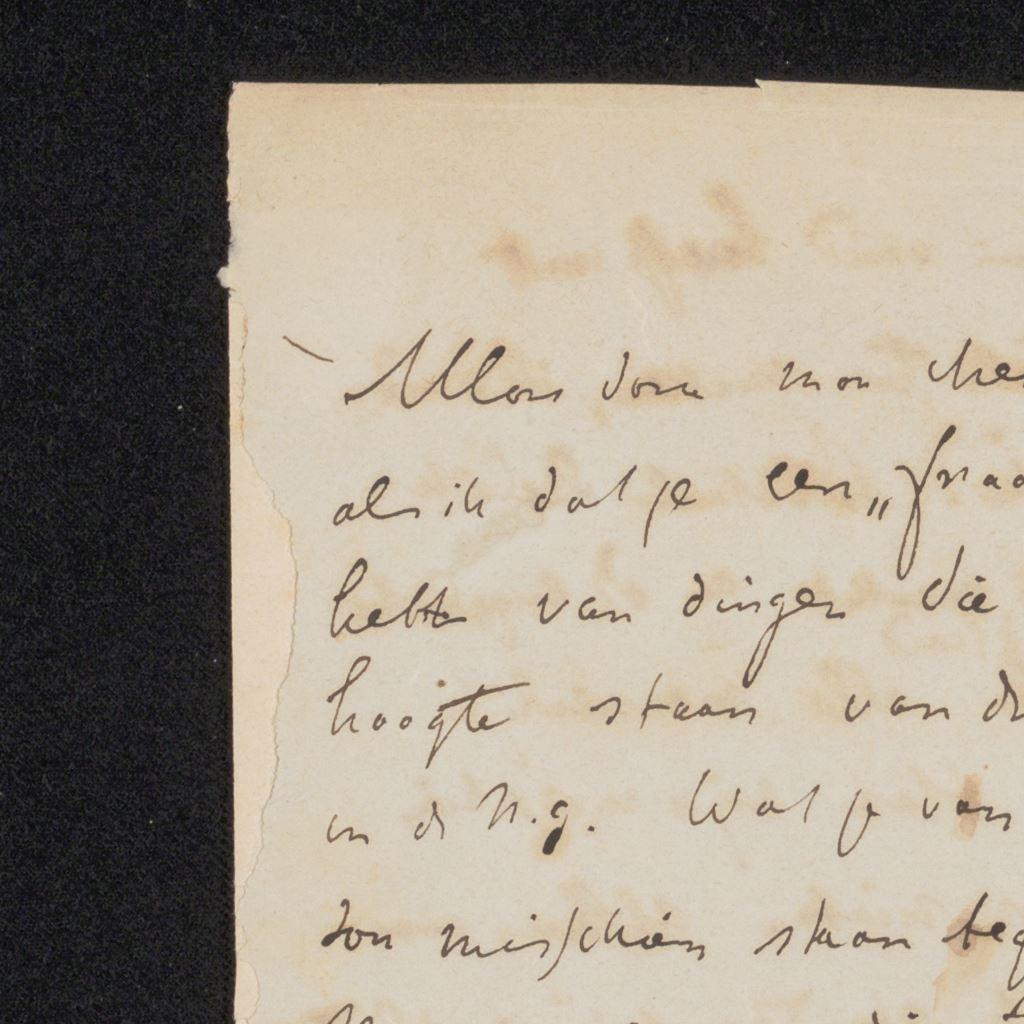 Allons donc mon cher
als ik dat je een „fraa
hebt van dingen die
hoogte staan van de
in de N.g. Wat je van
zou misschien staan teg